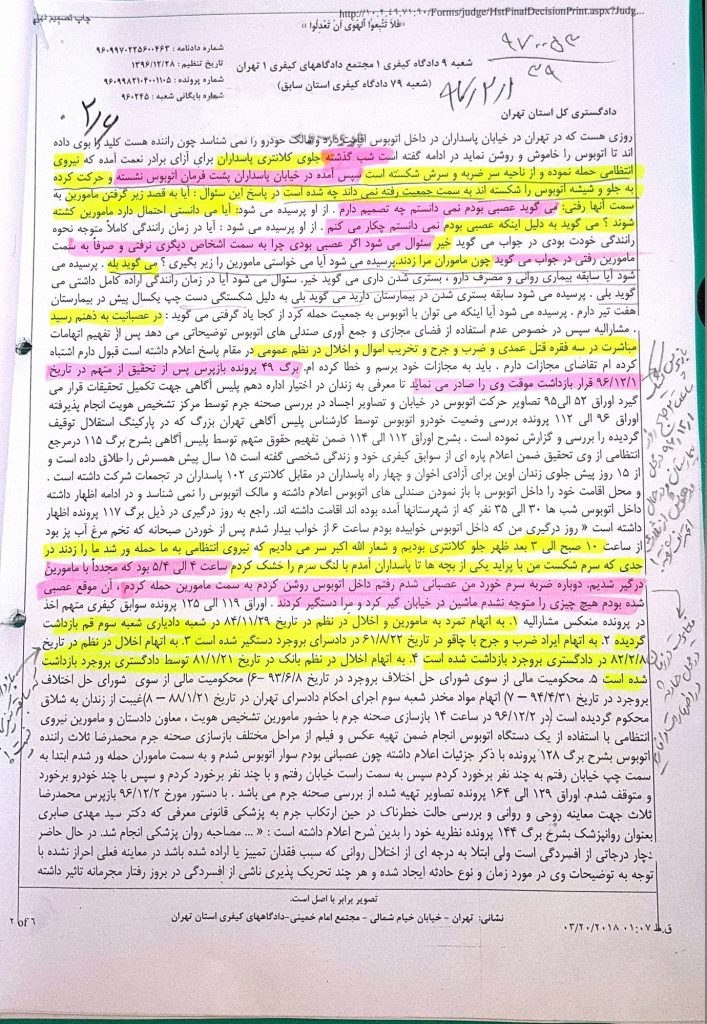 چاپ تصمیم نهایی
http://10.2.49.71:90/Forms/judge/HstFinalDecisionPrint.aspx?Judg...
«فَلا تَتَّبِعُوا الْهَوىٰ أَن تَعْدِلُوا»
شماره دادنامه : ۹۶۰۹۹۷۰۲۲۵۶۰۰۴۶۳
تاریخ تنظیم : ۱۳۹۶/۱۲/۲۸
شماره پرونده : ۹۶۰۹۹۸۲۱۰۴۰۰۱۱۰۵
شماره بایگانی شعبه : ۹۶۰۲۴۵
شعبه ۹ دادگاه کیفری ۱ مجتمع دادگاههای کیفری ۱ تهران
(شعبه ۷۹ دادگاه کیفری استان سابق)
دادگستری کل استان تهران
روزی هست که در تهران در خیابان پاسداران در داخل اتوبوس اقامت دارد و مالک خودرو را نمی شناسد چون راننده هست کلید را بوی داده
اند تا اتوبوس را خاموش و روشن نماید در ادامه گفته است شب گذشته جلوی کلانتری پاسداران برای آزای برادر نعمت آمده که نیروی
انتظامی حمله نموده و از ناحیه سر ضربه و سرش شکسته است سپس آمده در خیابان پاسداران پشت فرمان اتوبوس نشسته و حرکت کرده
به جلو و شیشه اتوبوس را شکسته اند به سمت جمعیت رفته نمی داند چه شده است در پاسخ این سئوال : آیا به قصد زیر گرفتن مامورین به
سمت آنها رفتی: می گوید عصبی بودم نمی دانستم چه تصمیم دارم . از او پرسیده می شود: آیا می دانستی احتمال دارد مامورین کشته
شوند ؟ می گوید به دلیل اینکه عصبی بودم نمی دانستم چکار می کنم . از او پرسیده می شود : آیا در زمان رانندگی کاملاً متوجه نحوه
رانندگی خودت بودی در جواب می گوید خیر سئوال می شود اگر عصبی بودی چرا به سمت اشخاص دیگری نرفتی و صرفاً به سمت
مامورین رفتی در جواب می گوید چون ماموران مرا زدند.پرسیده می شود آیا می خواستی مامورین را زیر بگیری ؟ می گوید بله . پرسیده می
شود آیا سابقه بیماری روانی و مصرف دارو ، بستری شدن داری می گوید خیر. سئوال می شود آیا در زمان رانندگی اراده کامل داشتی می
گوید بلی . پرسیده می شود سابقه بستری شدن در بیمارستان دارید می گوید بلی به دلیل شکستگی دست چپ یکسال پیش در بیمارستان
هفت تیر دارم . پرسیده می شود آیا اینکه می توان با اتوبوس به جمعیت حمله کرد از کجا یاد گرفتی می گوید : در عصبانیت به ذهنم رسید
. مشارالیه سپس در خصوص عدم استفاده از فضای مجازی و جمع آوری صندلی های اتوبوس توضیحاتی می دهد پس از تفهیم اتهامات
مباشرت در سه فقره قتل عمدی و ضرب و جرح و تخریب اموال و اخلال در نظم عمومی در مقام پاسخ اعلام داشته است قبول دارم اشتباه
کرده ام تقاضای مجازات دارم . باید به مجازات خود برسم و خطا کرده ام. برگ ۴۹ پرونده بازپرس پس از تحقیق از متهم در تاریخ
۹۶/۱۲/۱ قرار بازداشت موقت وی را صادر می نماید تا معرفی به زندان در اختیار اداره دهم پلیس آگاهی جهت تکمیل تحقیقات قرار می
گیرد اوراق ۵۲ الی۹۵ تصاویر حرکت اتوبوس در خیابان و تصاویر اجساد در بررسی صحنه جرم توسط مرکز تشخیص هویت انجام پذیرفته
اوراق ۹۶ الی ۱۱۲ پرونده بررسی وضعیت خودرو اتوبوس توسط کارشناس پلیس آگاهی تهران بزرگ که در پارکینگ استقلال توقیف
گردیده را بررسی و گزارش نموده است . بشرح اوراق ۱۱۲ الی ۱۱۴ ضمن تفهیم حقوق متهم توسط پلیس آگاهی بشرح برگ ۱۱۵ درمرجع
انتظامی از وی تحقیق ضمن اعلام پاره ای از سوابق کیفری خود و زندگی شخصی گفته است ۱۵ سال پیش همسرش را طلاق داده است و
از ۱۵ روز پیش جلوی زندان اوین برای آزادی اخوان و چهار راه پاسداران در مقابل کلانتری ۱۰۲ پاسداران در تجمعات شرکت داشته است .
و محل اقامت خود را داخل اتوبوس با باز نمودن صندلی های اتوبوس اعلام داشته و مالک اتوبوس را نمی شناسد و در ادامه اظهار داشته
داخل اتوبوس شب ها ۳۰ الی ۳۵ نفر که از شهرستانها آمده بوده اند اقامت داشته اند. راجع به روز درگیری در ذیل برگ ۱۱۷ پرونده اظهار
داشته است « روز درگیری من که داخل اتوبوس خوابیده بودم ساعت ۶ از خواب بیدار شدم پس از خوردن صبحانه که تخم مرغ آب پز بود
از ساعت ۱۰ صبح الی ۳ بعد ظهر جلو کلانتری بودیم و شعار الله اکبر سر می دادیم که نیروی انتظامی به ما حمله ور شد ما را زدند در
حدی که سرم شکست من با پراید یکی از بچه ها تا پاسداران آمدم با لنگ سرم را خشک کردم ساعت ۴ الی ۵/۴ بود که مجدداً با مامورین
درگیر شدیم. دوباره ضربه سرم خورد من عصبانی شدم رفتم داخل اتوبوس روشن کردم به سمت مامورین حمله کردم ، آن موقع عصبی
شده بودم هیچ چیزی را متوجه نشدم ماشین در خیابان گیر کرد و مرا دستگیر کردند . اوراق ۱۱۹ الی ۱۲۵ پرونده سوابق کیفری متهم اخذ
در پرونده منعکس مشارالیه ۱. به اتهام تمرد به مامورین و اخلال در نظم در تاریخ ۸۴/۱۱/۲۹ در شعبه دادیاری شعبه سوم قم بازداشت
گردیده ۲. به اتهام ایراد ضرب و جرح با چاقو در تاریخ ۶۱/۸/۲۲ در دادسرای بروجرد دستگیر شده است ۳. به اتهام اخلال در نظم در تاریخ
۸۲/۲/۸ در دادگستری بروجرد بازداشت شده است ۴. به اتهام اخلال در نظم بانک در تاریخ ۸۱/۱/۲۱ توسط دادگستری بروجرد بازداشت
شده است ۵. محکومیت مالی از سوی شورای حل اختلاف بروجرد در تاریخ ۹۳/۶/۸ –۶) محکومیت مالی از سوی شورای حل اختلاف
بروجرد در تاریخ ۹۴/۴/۳۱ – ۷) اتهام مواد مخدر شعبه سوم اجرای احکام دادسرای تهران در تاریخ ۸۸/۱/۲۱ – ۸)غیبت از زندان به شلاق
محکوم گردیده است )در ۹۶/۱۲/۲ در ساعت ۱۴ بازسازی صحنه جرم با حضور مامورین تشخیص هویت ، معاون دادستان و مامورین نیروی
انتظامی با استفاده از یک دستگاه اتوبوس انجام ضمن تهیه عکس و فیلم از مراحل مختلف بازسازی صحنه جرم محمدرضا ثلاث راننده
اتوبوس بشرح برگ ۱۲۸ پرونده با ذکر جزئیات اعلام داشته چون عصبانی بودم سوار اتوبوس شدم و به سمت ماموران حمله ور شدم ابتدا به
سمت چپ خیابان رفتم به چند نفر برخورد کردم سپس به سمت راست خیابان رفتم و با چند نفر برخورد کردم و سپس با چند خودرو برخورد
و متوقف شدم. اوراق ۱۲۹ الی ۱۶۴ پرونده تصاویر تهیه شده از بررسی صحنه جرم می باشد . با دستور مورخ ۹۶/۱۲/۲ بازپرس محمدرضا
ثلاث جهت معاینه روحی و روانی و بررسی حالت خطرناک در حین ارتکاب جرم به پزشکی قانونی معرفی که دکتر سید مهدی صابری
بعنوان روانپزشک بشرح برگ ۱۴۴ پرونده نظریه خود را بدین شرح اعلام داشته است : « ... مصاحبه روان پزشکی انجام شد. در حال حاضر
دچار درجاتی از افسردگی است ولی ابتلا به درجه ای از اختلال روانی که سبب فقدان تمییز یا اراده شده باشد در معاینه فعلی احراز نشده با
توجه به توضیحات وی در مورد زمان و نوع حادثه ایجاد شده و هر چند تحریک پذیری ناشی از افسردگی در بروز رفتار مجرمانه تاثیر داشته
تصویر برابر با اصل است.
نشانی: تهران - خیابان خیام شمالی - مجتمع امام خمینی-دادگاههای کیفری استان تهران
۲ of ۶
۰۳/۲۰/۲۰۱۸ ۰۱:۰۷ ق.ظ